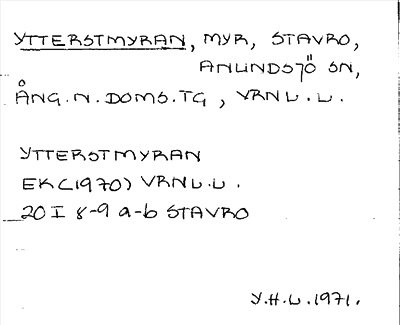 YTTERSTMYRAN, MYR, STAVRO,
ANUNDSJÖ SN,
ÅNG.N.DOMS.TG, VRNL.L.
YTTERSTMYRAN
EK(1970) VRNL.L.
20 I 8-9 a-b STAVRO
Y.H.L.1971.